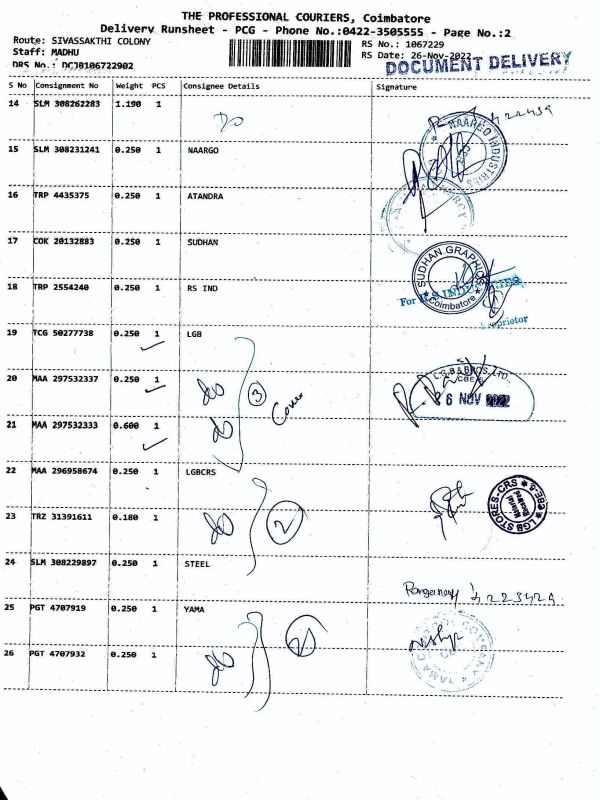 THE PROFESSIONAL COURIERS, Coimbatore
Delivery Runsheet - PCG - Phone No.:0422-3505555 - Page No.:2
Route: SIVASSAKTHI COLONY
RS No.: 1067229
Staff: MADHU
RS Date: 26-Nov-2022
DRS No.: DCJB106722902
DOCUMENT DELIVERY
S No Consignment No Weight PCS Consignee Details Signature
14 SLM 308262283 1.190 1
NAARGO INDUSTRIES
15 SLM 308231241 0.250 1 NAARGO
16 TRP 4435375 0.250 1 ATANDRA
17 COK 20132883 0.250 1 SUDHAN
SUDHAN GRAPHICS
Coimbatore
18 TRP 2554240 0.250 1 RS IND
For R S INDUSTRIES
Proprietor
19 TCG 50277738 0.250 1 LGB
20 MAA 297532337 0.250 1
3 Cover
L.G.B.&BROS. LTD.,
CBE-6
26 NOV 2022
21 MAA 297532333 0.600 1
22 MAA 296958674 0.250 1 LGBCRS
LGB STORES-CRS CBE-6
Material
Received
23 TRZ 31391611 0.180 1
2
24 SLM 308229897 0.250 1 STEEL
25 PGT 4707919 0.250 1 YAMA
2
26 PGT 4707932 0.250 1